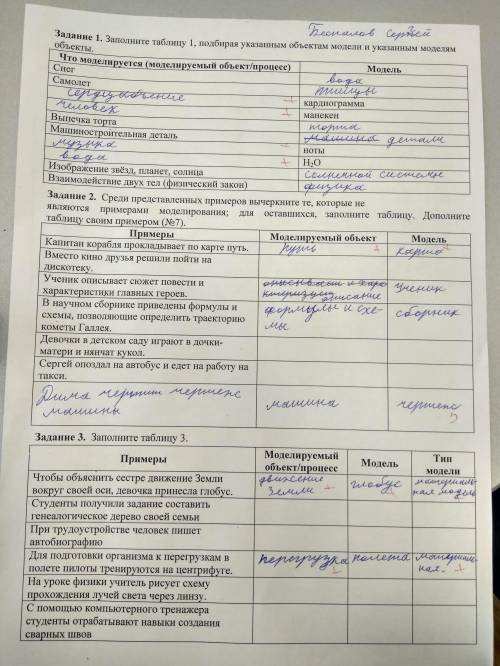 Беспалов Сергей
Задание 1. Заполните таблицу 1, подбирая указанным объектам модели и указанным моделям
объекты.
Что моделируется (моделируемый объект/процесс) Модель
Снег вода
Самолет птицы
сердцебиение + кардиограмма
человек + манекен
Выпечка торта торта
Машиностроительная деталь машина детали
музыка - ноты
вода + H₂O
Изображение звёзд, планет, солнца солнечной системы
Взаимодействие двух тел (физический закон) физика
Задание 2. Среди представленных примеров вычеркните те, которые не
являются примерами моделирования; для оставшихся, заполните таблицу. Дополните
таблицу своим примером (№7).
Примеры Моделируемый объект Модель
Капитан корабля прокладывает по карте путь. путь + карта +
Вместо кино друзья решили пойти на
дискотеку.
Ученик описывает сюжет повести и
характеристики главных героев. описание ученик
В научном сборнике приведены формулы и
схемы, позволяющие определить траекторию
кометы Галлея. формулы и схе-
мы сборник
Девочки в детском саду играют в дочки-
матери и нянчат кукол.
Сергей опоздал на автобус и едет на работу на
такси.
Дима чертит чертеж
машины машина чертеж
Задание 3. Заполните таблицу 3.
Примеры Моделируемый
объект/процесс Модель Тип
модели
Чтобы объяснить сестре движение Земли
вокруг своей оси, девочка принесла глобус. движение
Земли + глобус + материаль-
ная модель
Студенты получили задание составить
генеалогическое дерево своей семьи
При трудоустройстве человек пишет
автобиографию
Для подготовки организма к перегрузкам в
полете пилоты тренируются на центрифуге. перегрузка - полета материаль-
ная. +
На уроке физики учитель рисует схему
прохождения лучей света через линзу.
С помощью компьютерного тренажера
студенты отрабатывают навыки создания
сварных швов